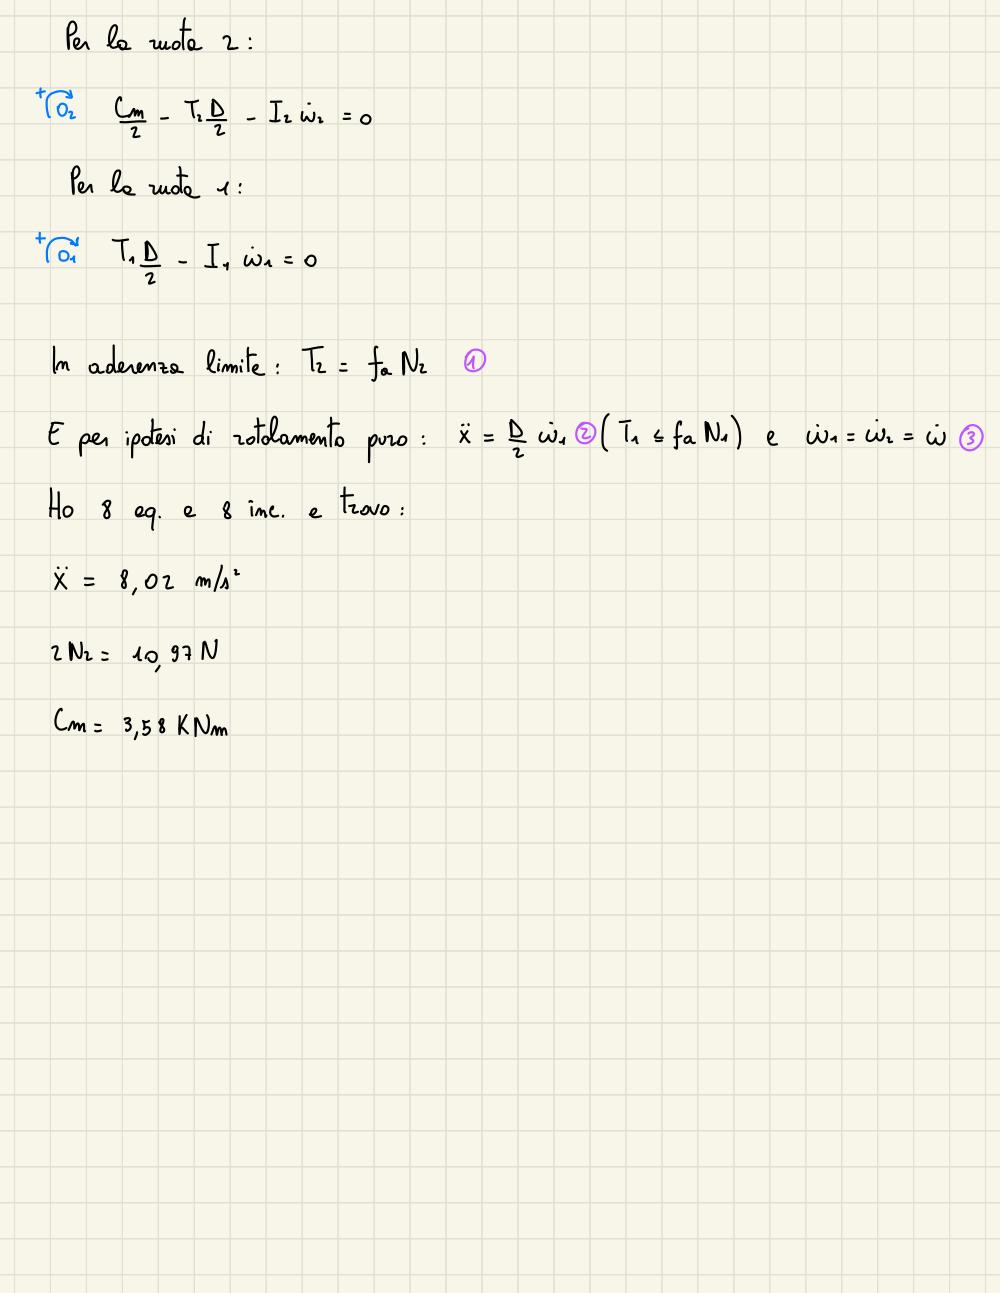 Per la ruota 2:
+ O₂ Cm/2 - T₂ D/2 - I₂ ω̇₂ = 0
Per la ruota 1:
+ O₁ T₁ D/2 - I₁ ω̇₁ = 0
In aderenza limite: T₂ = fa N₂ ①
E per ipotesi di rotolamento puro: ẍ = D/2 ω̇₁ ② (T₁ ≤ fa N₁) e ω̇₁ = ω̇₂ = ω̇ ③
Ho 8 eq. e 8 inc. e trovo:
ẍ = 8,02 m/s²
2N₂ = 10,97 N
Cm = 3,58 KNm